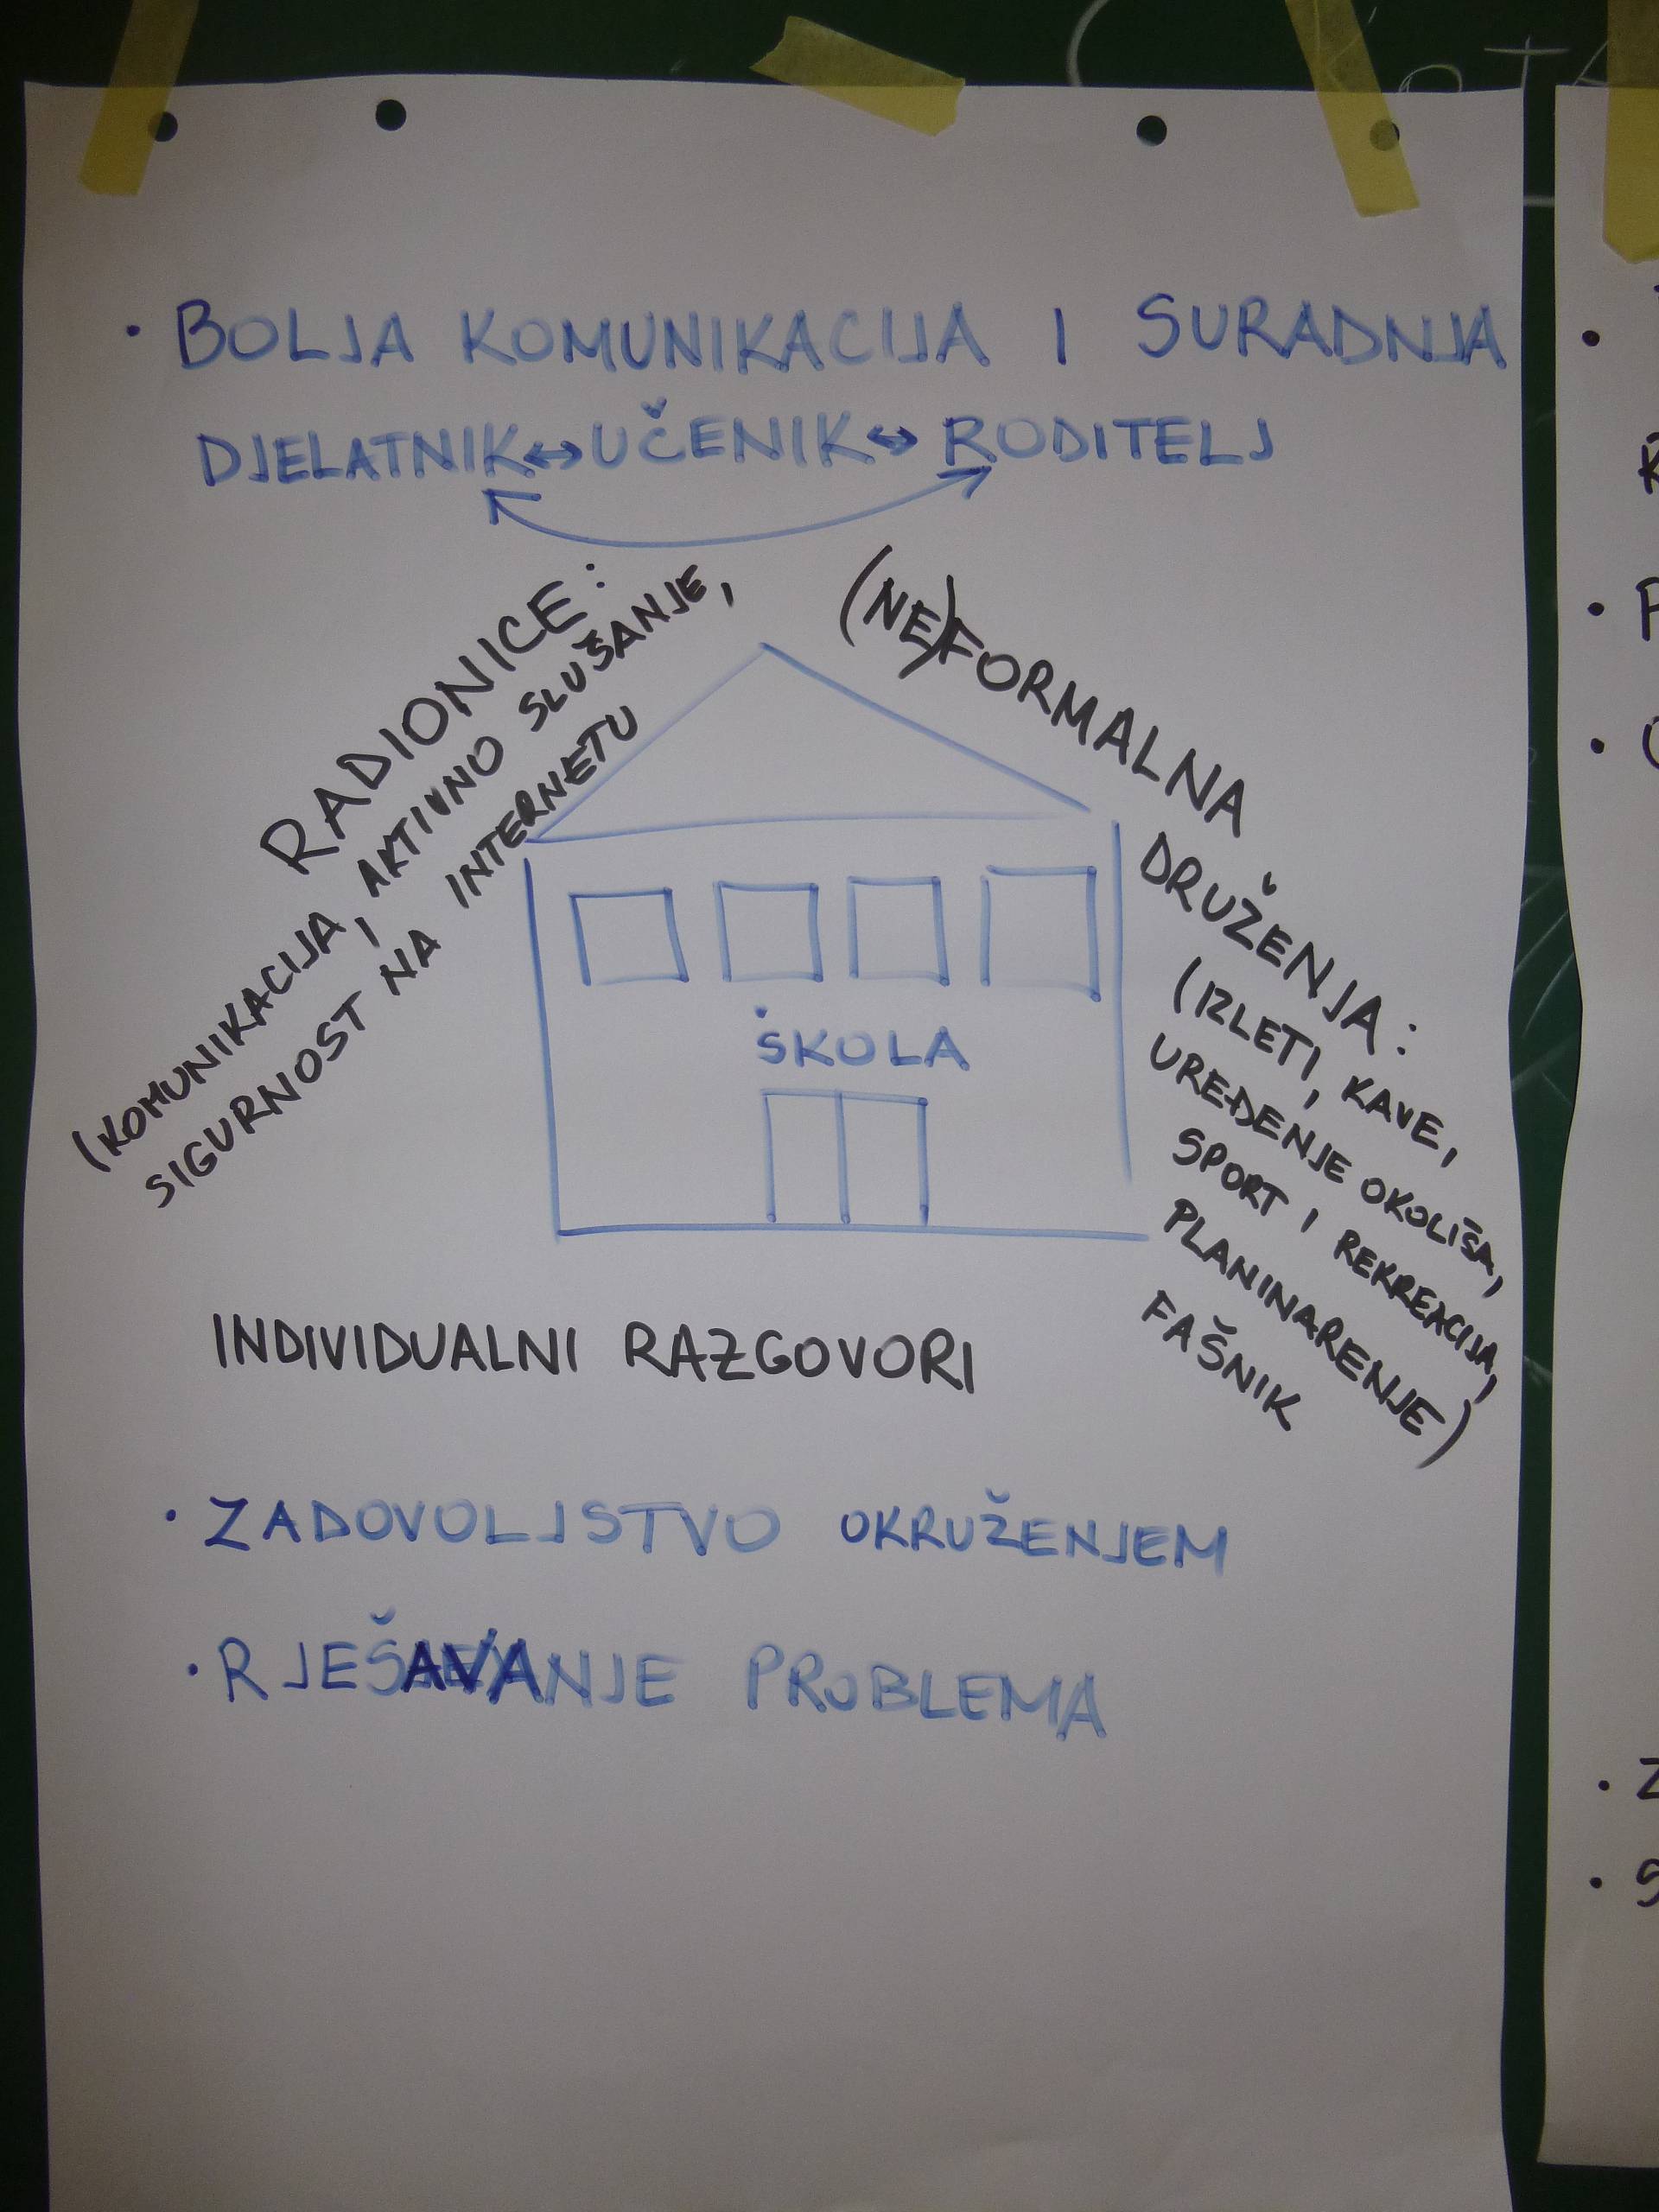 • BOLJA KOMUNIKACIJA I SURADNJA
DJELATNIK ↔ UČENIK ↔ RODITELJ
RADIONICE:
(KOMUNIKACIJA, AKTIVNO SLUŠANJE,
SIGURNOST NA INTERNETU
(NE)FORMALNA
DRUŽENJA:
(IZLETI, KAVE,
UREĐENJE OKOLIŠA,
SPORT I REKREACIJA,
PLANINARENJE)
FAŠNIK
ŠKOLA
INDIVIDUALNI RAZGOVORI
• ZADOVOLJSTVO OKRUŽENJEM
• RJEŠAVANJE PROBLEMA